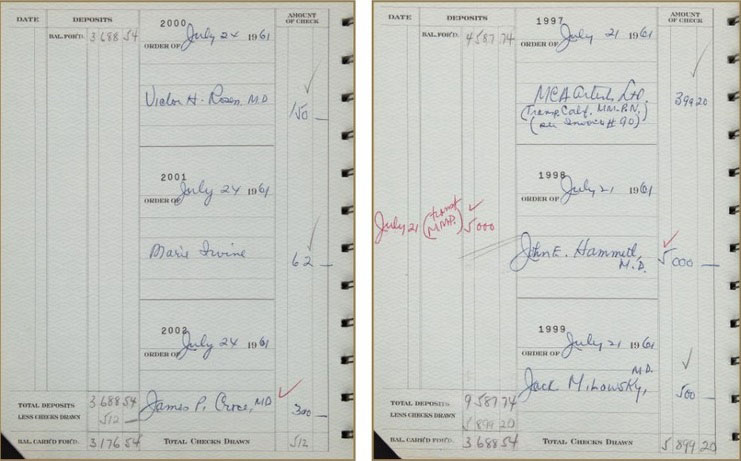 DATE DEPOSITS AMOUNT OF CHECK
BAL. FOR'D. 3688 54
2000
ORDER OF July 24 1961
Victor H. Rosen M.D
150 —
2001
ORDER OF July 24 1961
Marie Irvine
62 —
2002
ORDER OF July 24 1961
James P. Croce, MD
300 —
TOTAL DEPOSITS 3688 54
LESS CHECKS DRAWN 512 —
BAL. CARR'D FOR'D. 3176 54 TOTAL CHECKS DRAWN 512
DATE DEPOSITS AMOUNT OF CHECK
BAL. FOR'D. 4587 74
1997
ORDER OF July 21 1961
MCA Artists Ltd.
(Transp. Calif. MM-P.N.)
(per Invoice # 90)
399 20
1998
ORDER OF July 21 1961
July 21 (transf MMP.) 5000
John E. Hammett M.D.
5000 —
1999
ORDER OF July 21 1961
Jack Milowsky, M.D.
500 —
TOTAL DEPOSITS 9587 74
LESS CHECKS DRAWN 5899 20
BAL. CARR'D FOR'D. 3688 54 TOTAL CHECKS DRAWN 5899 20